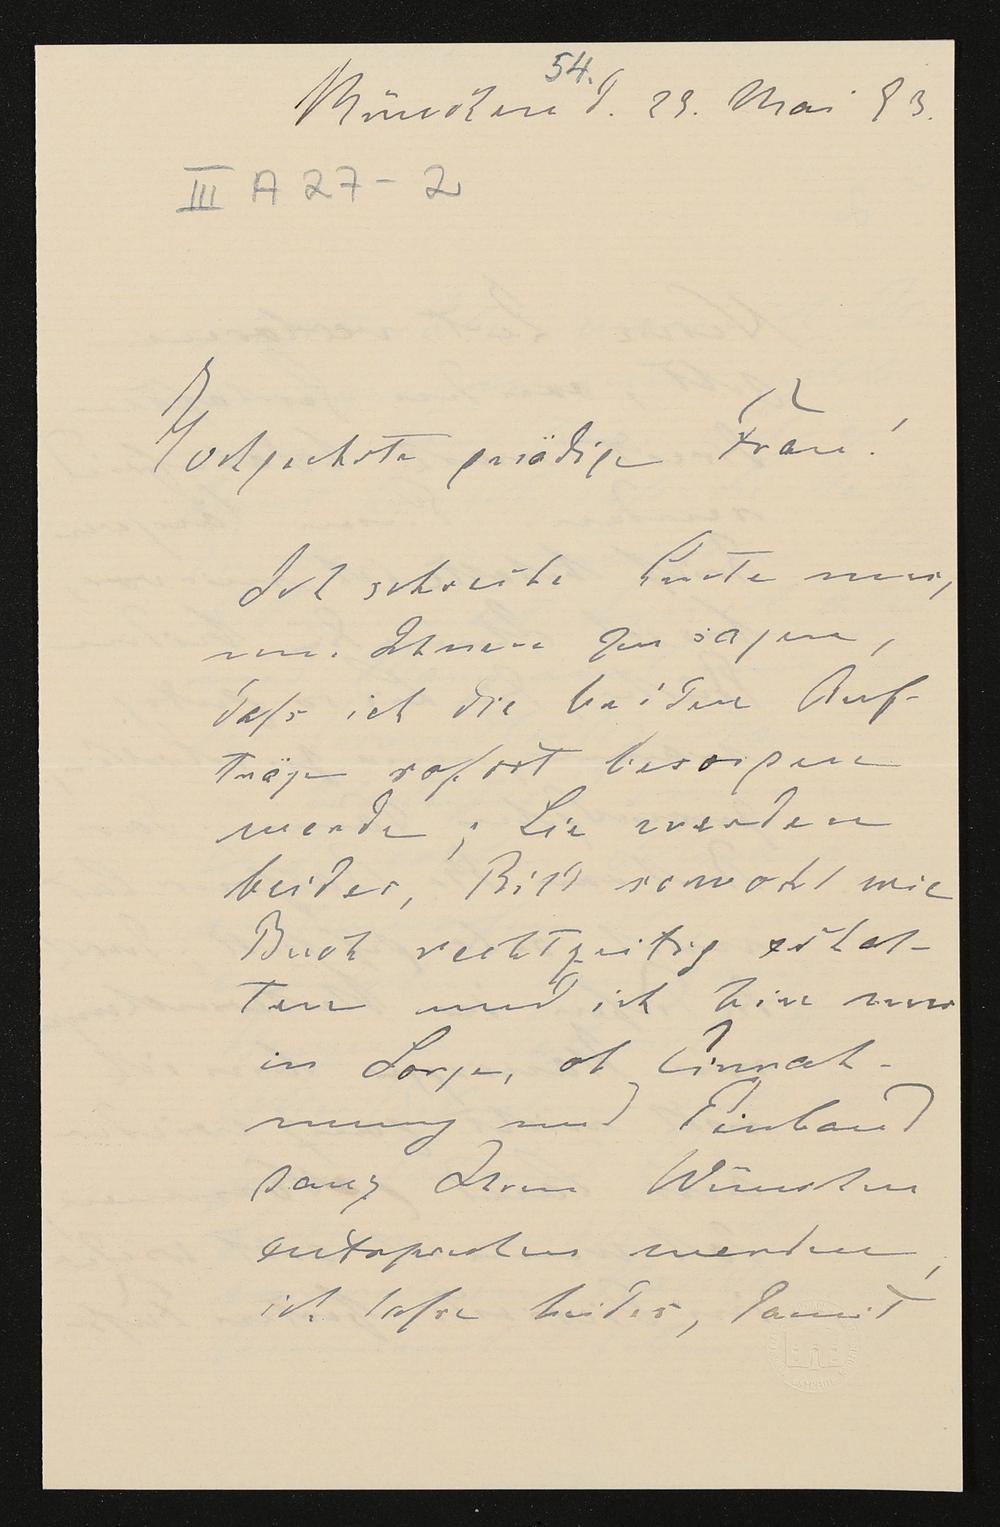 54.
München d. 29. Mai 93.
III A 27 - 2
Hochgeehrte gnädige Frau!
Ich schreibe heute nur,
um Ihnen zu sagen,
daß ich die beiden Auf-
träge sofort besorgen
werde; Sie werden
beides, Bild sowohl wie
Buch rechtzeitig erhal-
ten und ich bin nur
in Sorge, ob Einrah-
mung und Einband
ganz Ihren Wünschen
entsprechen werden,
ich lasse beides, damit